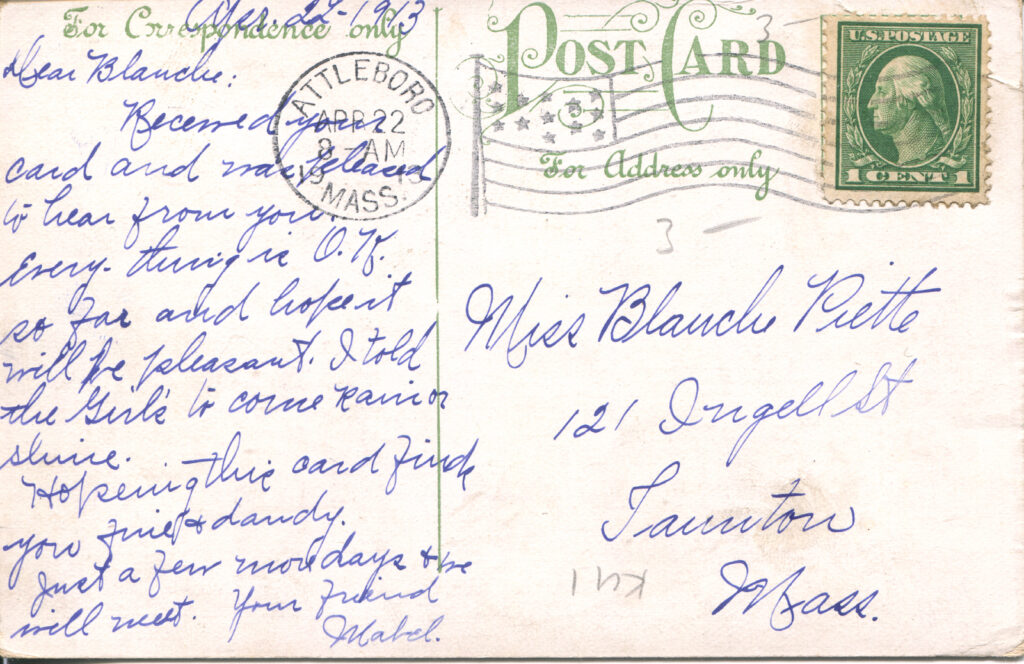 Apr. 22-1913
For Correspondence only
Dear Blanche:
Received your
card and was pleased
to hear from you.
Every-thing is O.K.
so far and hope it
will be pleasant. I told
the Girls to come rain or
shine.
Hopeing this card finds
you fine & dandy.
Just a few more days & we
will meet. Your Friend
Mabel.
ATTLEBORO
APR 22
8-AM
1913
MASS.
POST CARD
For Address only
U.S. POSTAGE
1 CENT 1
3-
3-
Miss Blanche Piette
121 Ingell St
Taunton
Mass.